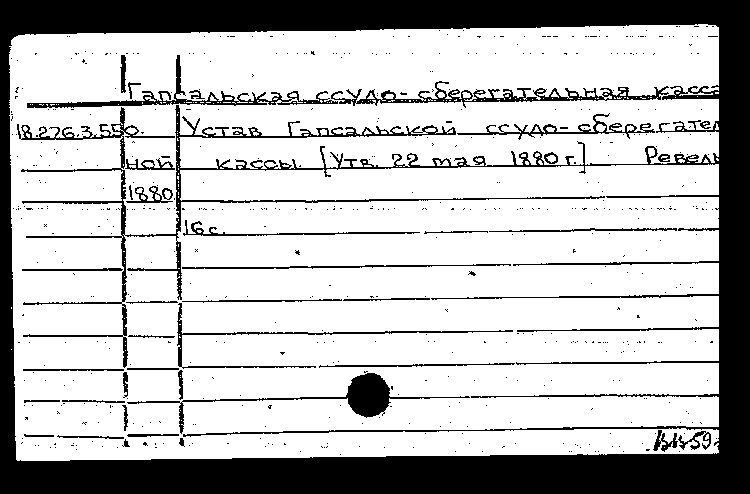 Гапсальская ссудо-сберегательная касса
18.276.3.550. Устав Гапсальской ссудо-сберегатель
ной кассы [Утв. 22 мая 1880 г.]. Ревель
1880
16 с.